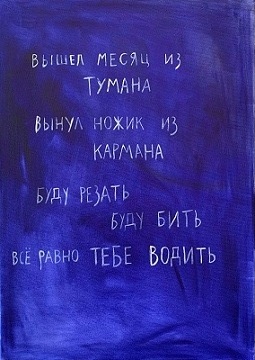 ВЫШЕЛ МЕСЯЦ ИЗ
ТУМАНА
ВЫНУЛ НОЖИК ИЗ
КАРМАНА
БУДУ РЕЗАТЬ
БУДУ БИТЬ
ВСЁ РАВНО ТЕБЕ ВОДИТЬ